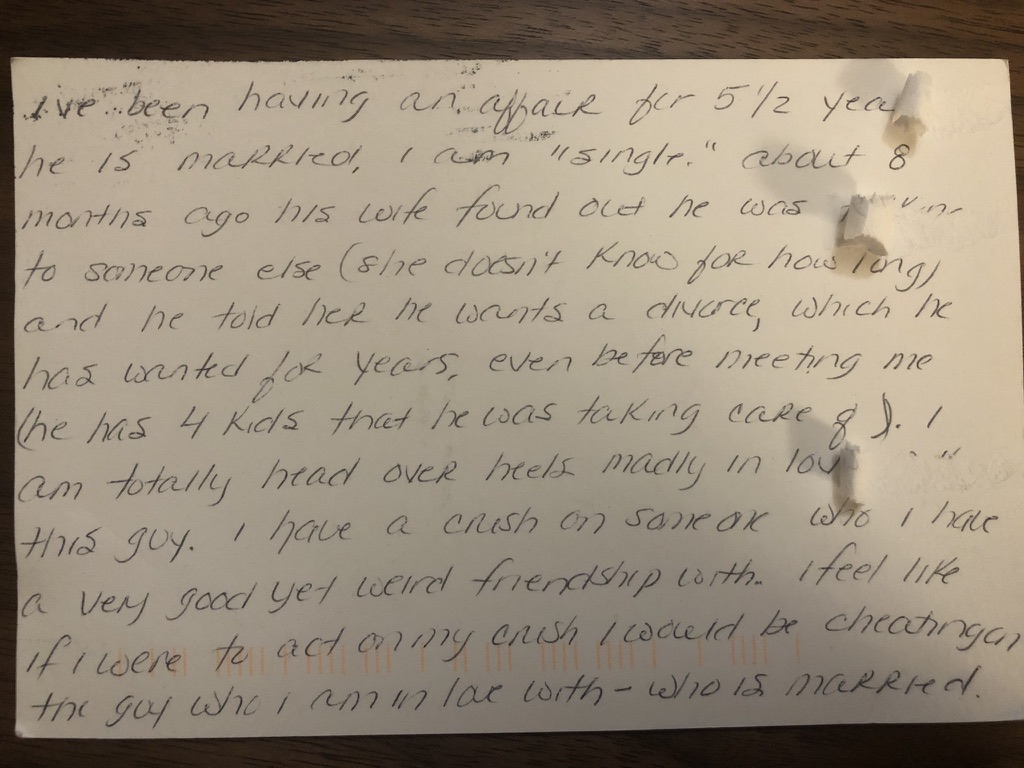 I've been having an affair for 5 1/2
he is married, I am "single." about 8
months ago his wife found out he was
to someone else (she doesn't know for how long)
and he told her he wants a divorce, which he
has wanted for years, even before meeting me
(he has 4 kids that he was taking care of). I
am totally head over heels madly in
this guy. I have a crush on someone who I have
a very good yet weird friendship with. I feel like
if I were to act on my crush I would be cheating on
the guy who I am in love with - who is married.